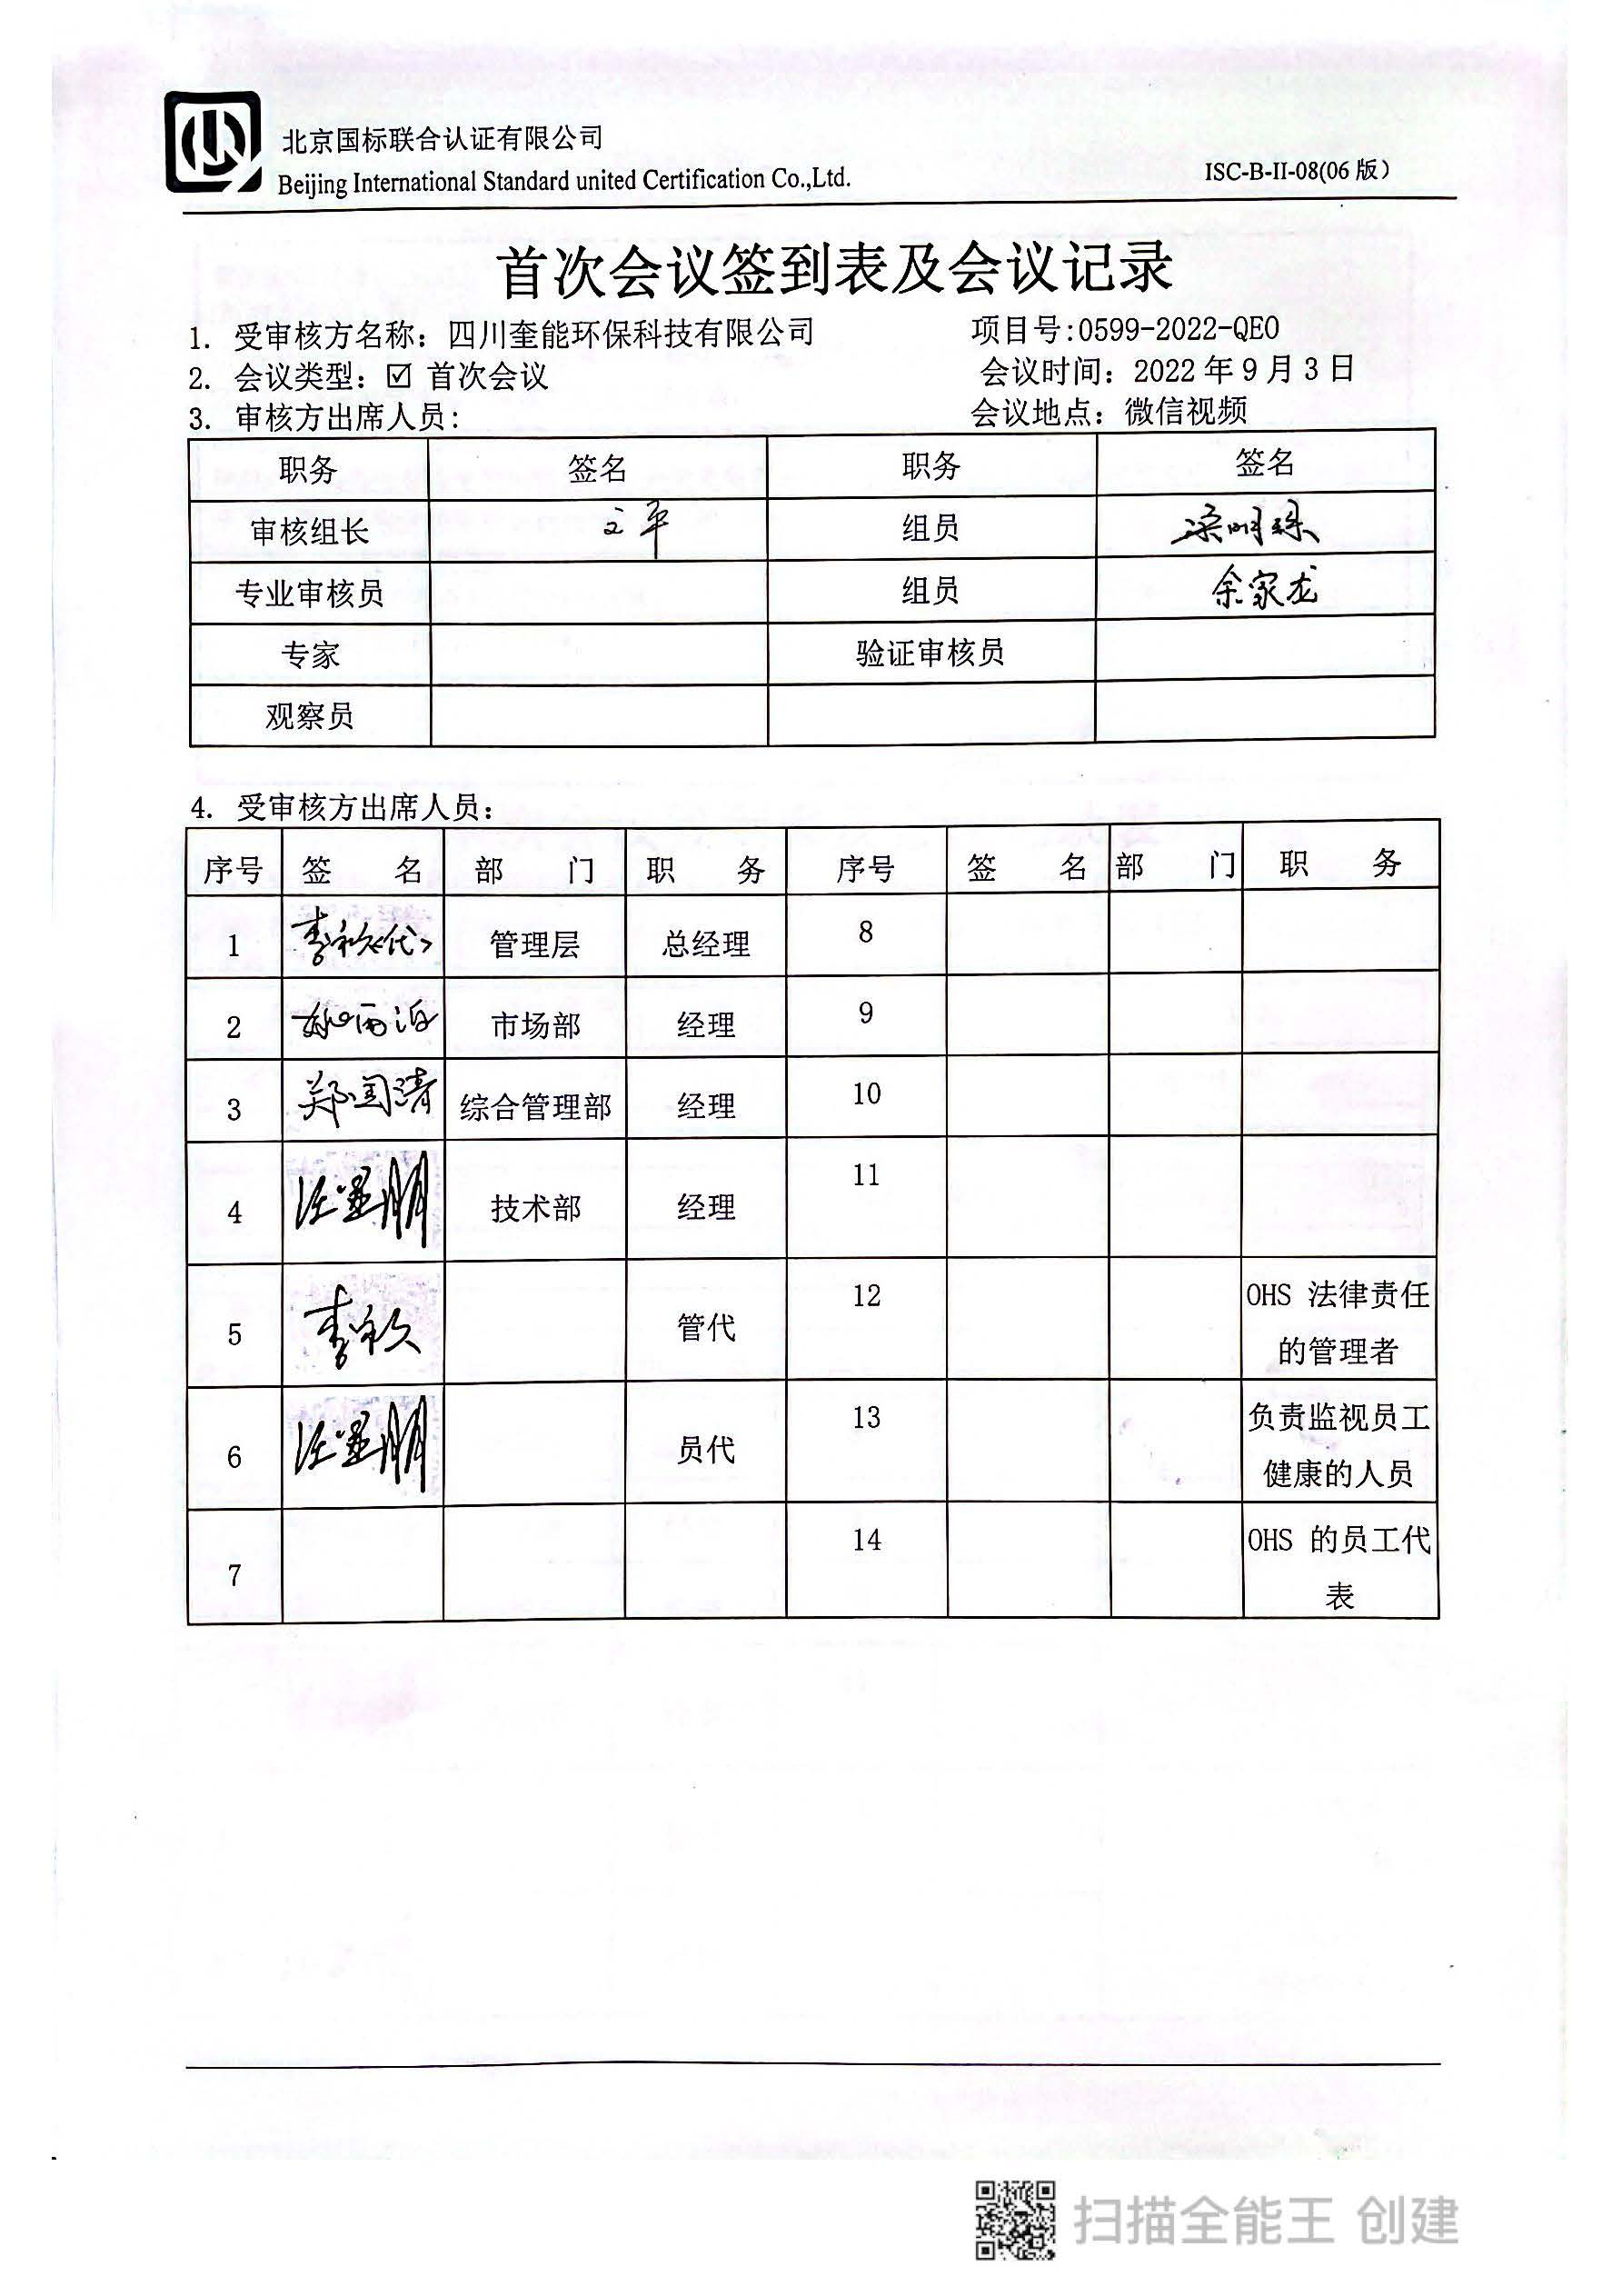 北京国标联合认证有限公司
Beijing International Standard united Certification Co.,Ltd.
ISC-B-II-08(06 版)
首次会议签到表及会议记录
1. 受审核方名称：四川奎能环保科技有限公司 项目号:0599-2022-QEO
2. 会议类型：☑ 首次会议 会议时间：2022 年 9 月 3 日
3. 审核方出席人员： 会议地点：微信视频
职务 签名 职务 签名
审核组长 文平 组员 梁明珠
专业审核员 组员 余家龙
专家 验证审核员
观察员
4. 受审核方出席人员：
序号 签 名 部 门 职 务 序号 签 名 部 门 职 务
1 管理层 总经理 8
2 市场部 经理 9
3 郑国清 综合管理部 经理 10
4 技术部 经理 11
5 管代 12 OHS 法律责任
的管理者
6 员代 13 负责监视员工
健康的人员
7 14 OHS 的员工代
表
扫描全能王 创建